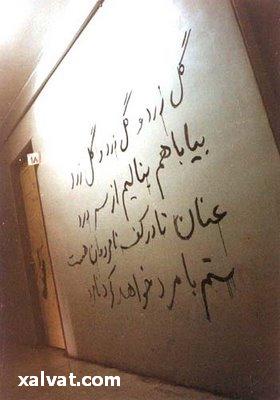 گل زرد و گل زرد و گل زرد
بیا با هم بنالیم از سر درد
عنان تا در کف نامردمان هست
ستم با مرد خواهد کرد نامرد
۱۸
xalvat.com